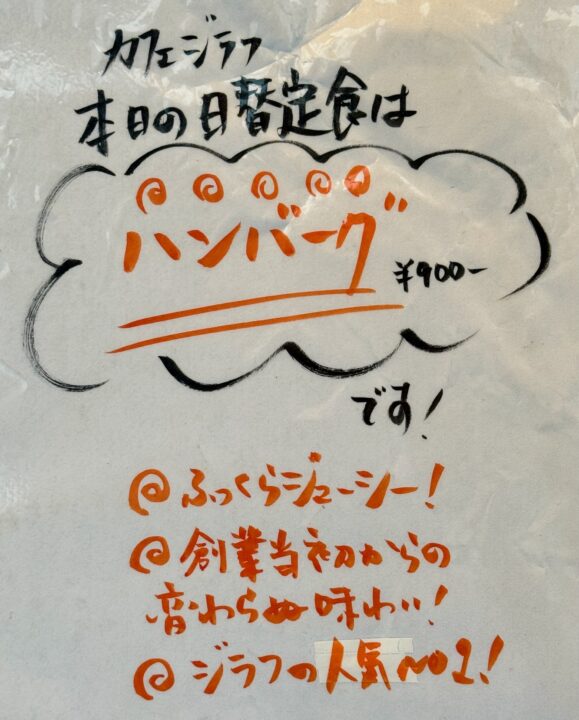 カフェジラフ
本日の日替定食は
ハンバーグ
¥900-
です!
ふっくらジューシー!
創業当初からの
変わらぬ味わい!
ジラフの人気No1!